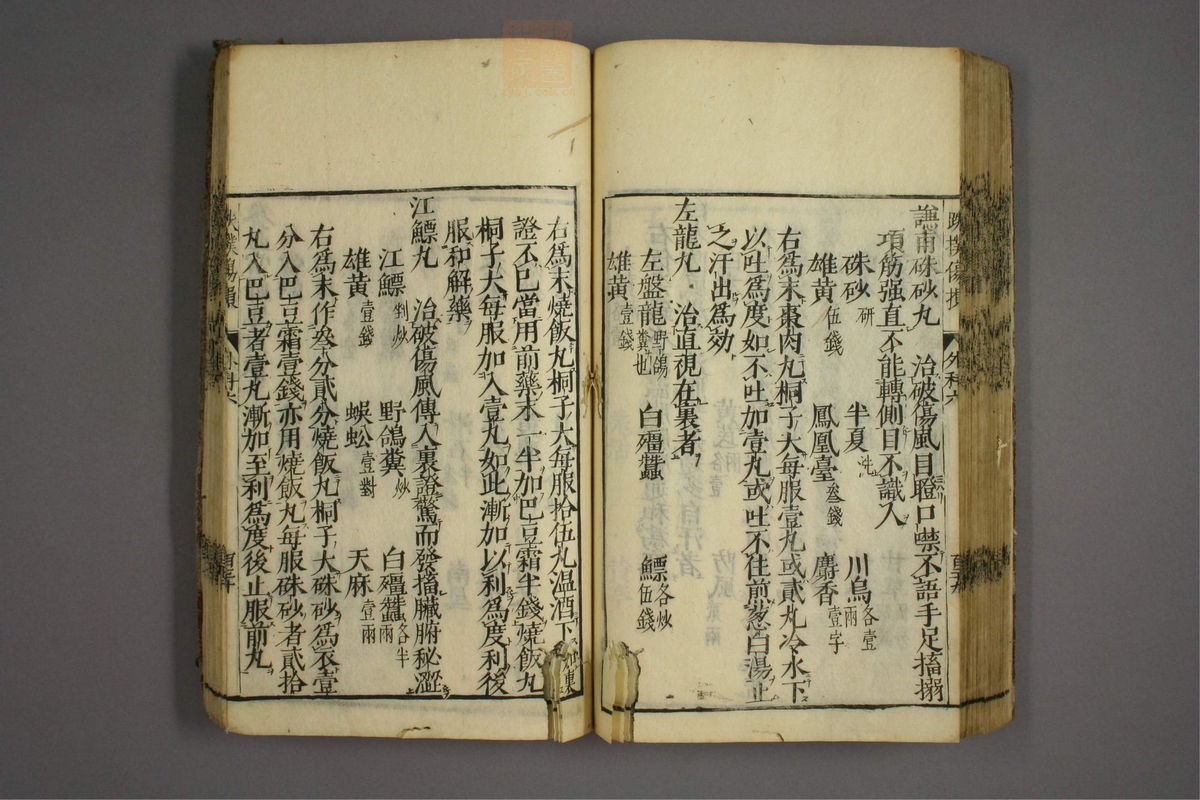 謙甫硃砂丸　治破傷風目瞪口噤不語手足搐搦
項筋强直不能轉側目不識人
硃砂研　半夏洗　川烏各壹兩
雄黄伍錢　鳳凰臺叁錢　麝香壹字
右爲末棗肉丸桐子大每服壹丸或貳丸冷水下
以吐爲度如不吐加壹丸或吐不住前葱白湯止
之汗出爲効
左龍丸　治直視在裏者
左盤龍野鴿糞也　白殭蠶　鰾各炒伍錢
雄黄壹錢
右爲末燒飯丸桐子大每服拾伍丸温酒下如裏
證不已當用前藥末一半加巴豆霜半錢燒飯丸
桐子大每服加入壹丸如此漸加以利爲度利後
服和解藥
江鰾丸　治破傷風傳入裏證驚而發搐臟腑秘澀
江鰾剉炒　野鴿糞炒　白殭蠶各半兩
雄黄壹錢　蜈蚣壹對　天麻壹兩
右爲末作叁分貳分燒飯丸桐子大硃砂爲衣壹
分入巴豆霜壹錢亦用燒飯丸每服硃砂者貳拾
丸入巴豆者壹丸漸加至利爲度後止服前丸